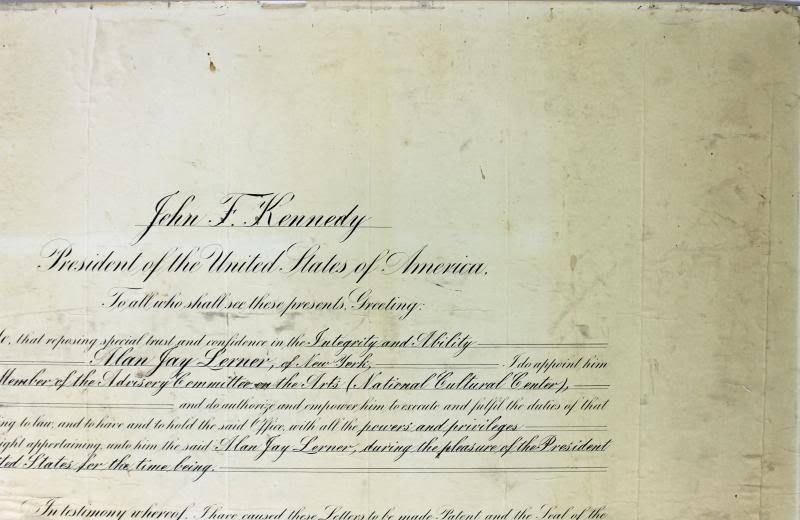 John F. Kennedy
President of the United States of America.
To all who shall see these presents, Greeting:
that reposing special trust and confidence in the Integrity and Ability
Alan Jay Lerner, of New York, I do appoint him
Member of the Advisory Committee on the Arts (National Cultural Center),
and do authorize and empower him to execute and fulfil the duties of that
ing to law, and to have and to hold the said Office, with all the powers and privileges
ight appertaining, unto him the said Alan Jay Lerner, during the pleasure of the President
ted States for the time being.
In testimony whereof, I have caused these Letters to be made Patent and the Seal of the